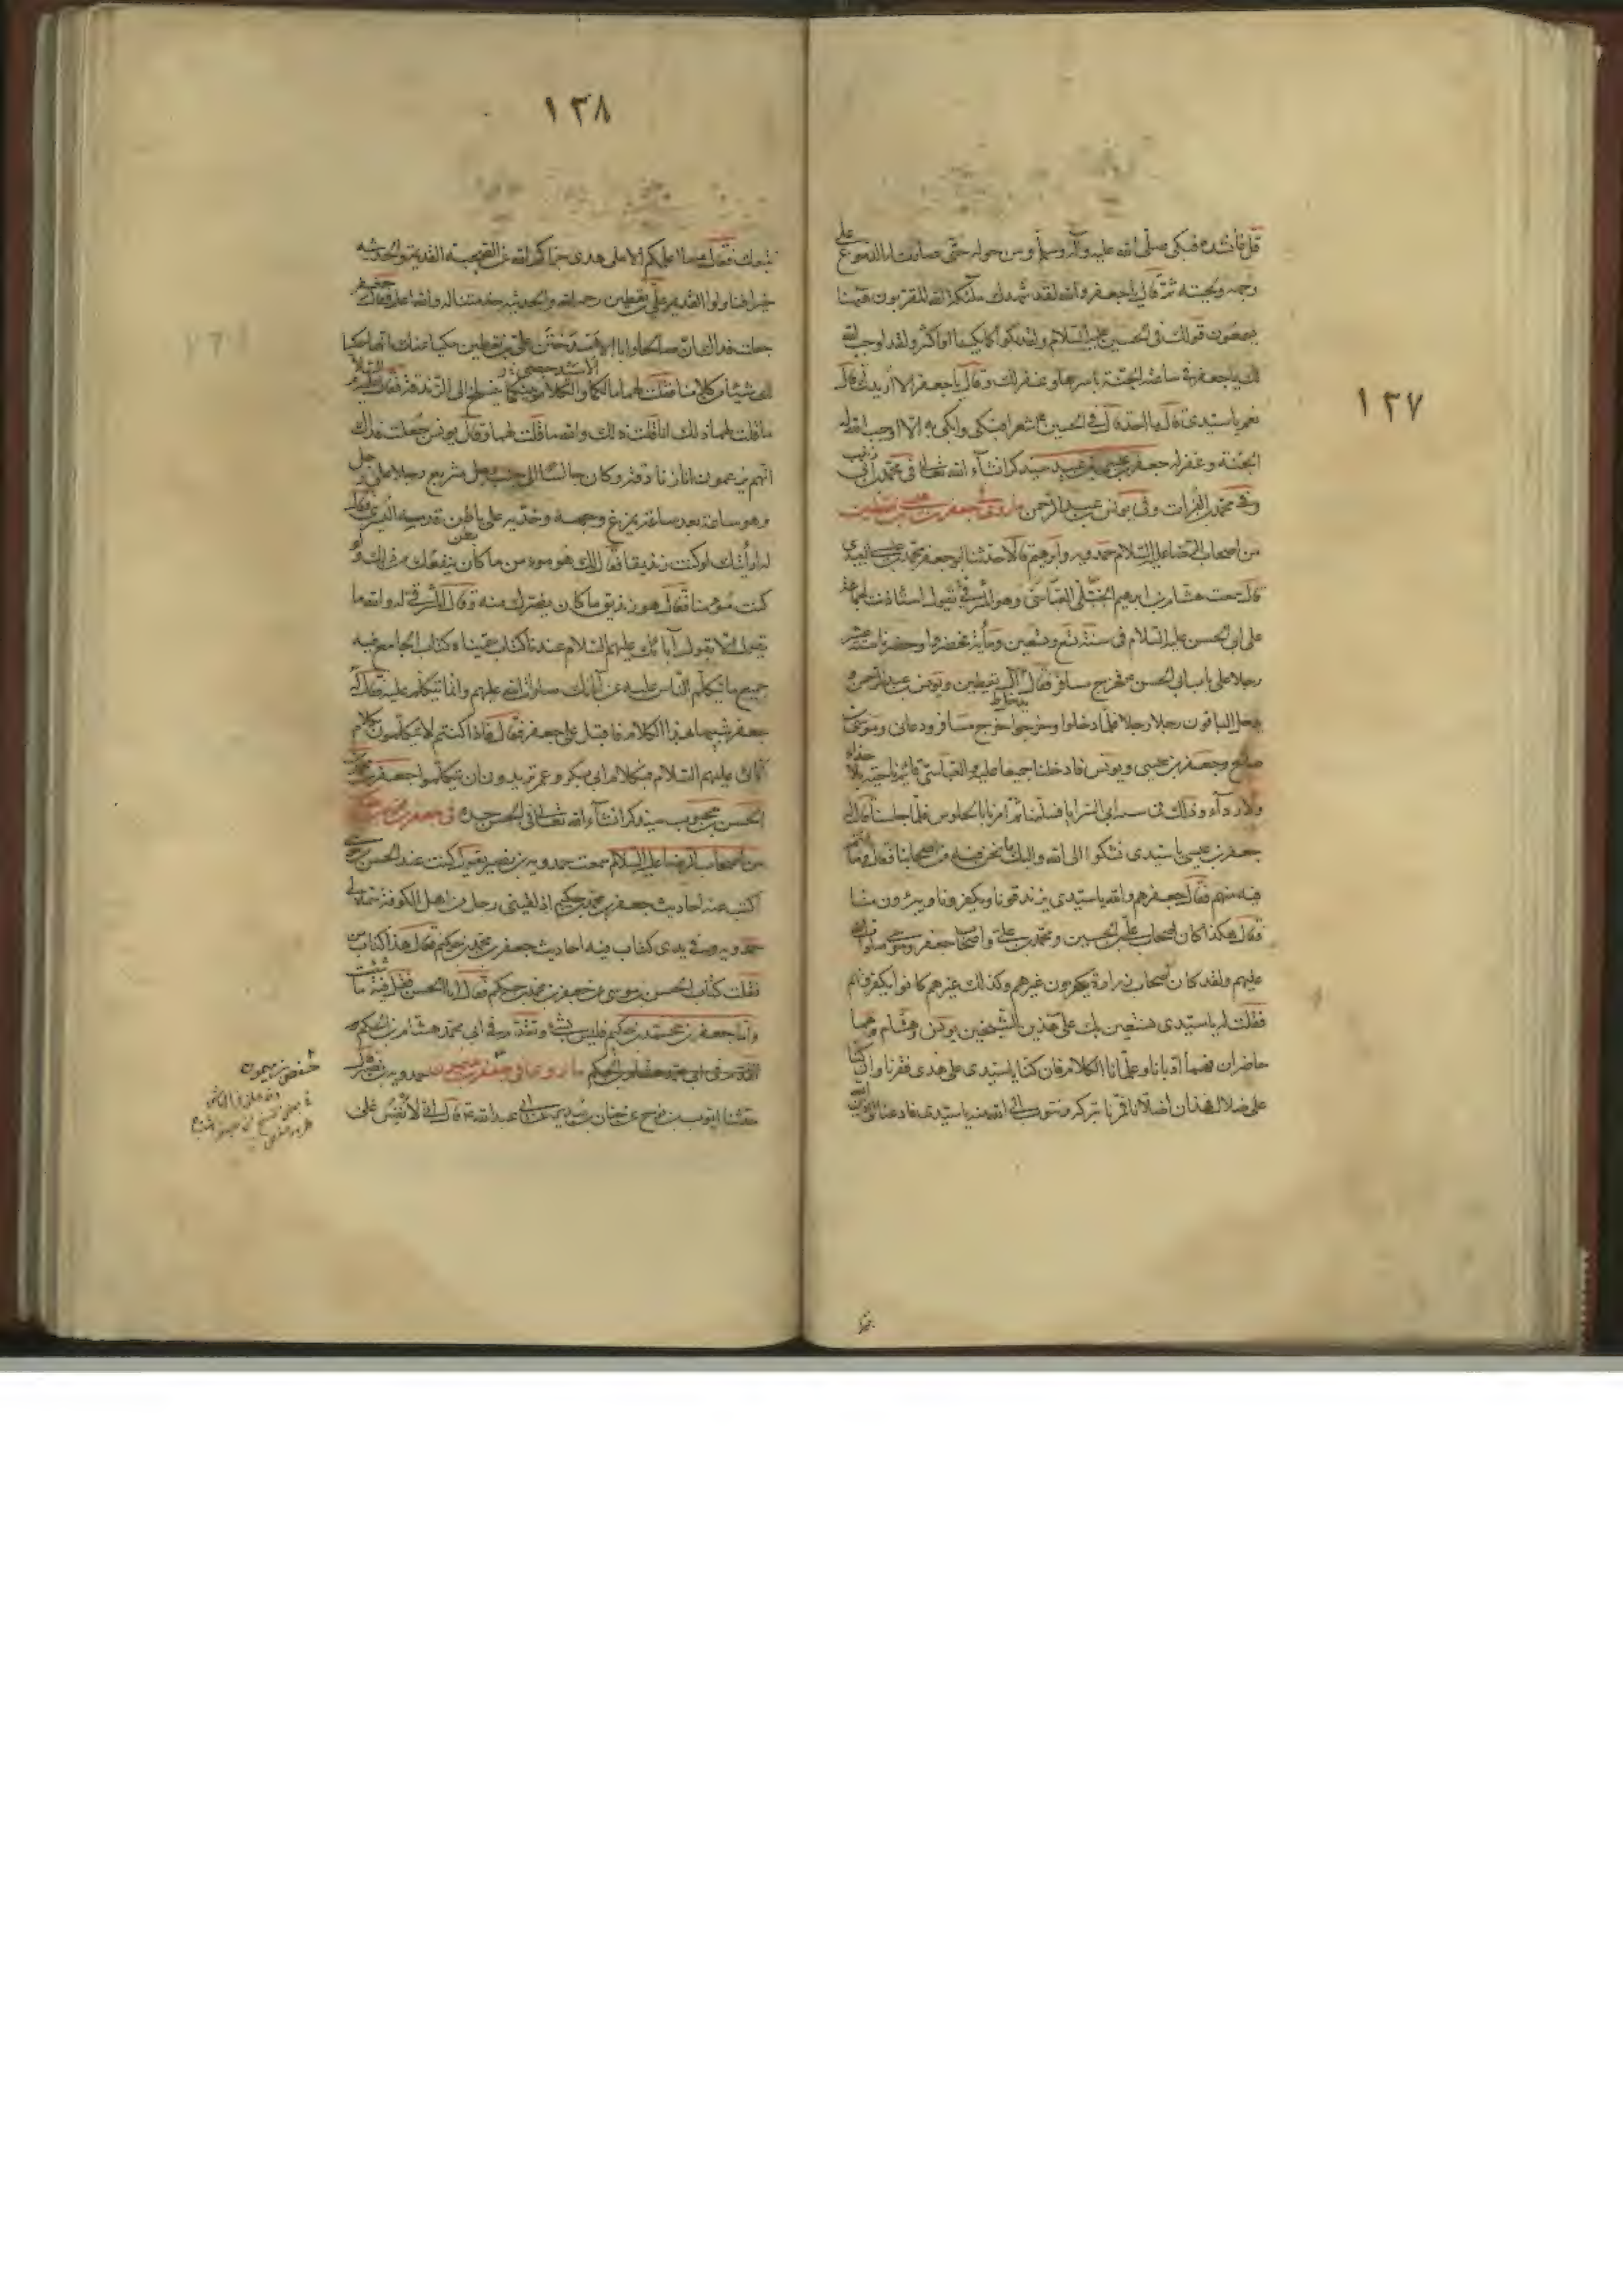 ١٣٧
قل فانشده فبكى صلى الله عليه وآله وسلم ومن حوله حتى صارت له الدموع على
وجهه ولحيته ثم قال يا جعفر والله لقد شهدك ملائكة الله المقربون ههنا
يسمعون قولك في الحسين عليه السلام ولقد بكوا كما بكينا او اكثر ولقد اوجب الله
لك يا جعفر في ساعته الجنة باسرها وغفر لك وقال يا جعفر الا ازيدك قال
نعم يا سيدي قال ما احد قال في الحسين شعرا فبكى وابكى به الا اوجب الله له
الجنة وغفر له جعفر بن عيسى بن عبيد سيذكر انشاء الله تعالى في محمد بن ابي زينب
وفي محمد بن الفرات وفي يونس بن عبد الرحمن ما روي في جعفر بن عيسى بن يقطين
من اصحاب الرضا عليه السلام حمدويه وابرهيم قالا حدثنا ابو جعفر محمد بن عيسى العبيدي
قال سمعت هشام بن ابرهيم الختلي العباسي وهو المشرقي يقول استاذنت لجماعة
على ابي الحسن عليه السلام في سنة تسع وتسعين ومائة فحضروا وحضرنا ستة عشر
رجلا على باب ابي الحسن فخرج مسافر فقال آل يقطين ويونس بن عبد الرحمن
يدخل الباقون رجلا رجلا فلما دخلوا وخرجوا خرج مسافر ودعاني وموسى بن
صالح وجعفر بن عيسى ويونس فادخلنا جميعا عليه والعباسي قائم ناحية بلا حذاء
ولا رداء وذلك في سنة ابي السرايا فسلمنا ثم امرنا بالجلوس فلما جلسنا قال له
جعفر بن عيسى يا سيدي نشكوا الى الله واليك ما نحن فيه من اصحابنا فقال وما انتم
فيه منهم فقال جعفر هم والله يا سيدي يزندقونا ويكفرونا ويبرؤن منا
فقال هكذا كان اصحاب علي بن الحسين ومحمد بن علي واصحاب جعفر وموسى صلوات الله
عليهم ولقد كان اصحاب زرارة يكفرون غيرهم وكذلك غيرهم كانوا يكفرونهم
فقلت له يا سيدي نستعين بك على هذين الشيخين يونس وهشام وهما
حاضران فهما ادبانا وعلمانا الكلام فان كنا يا سيدي على هدى ففزنا وان كنا
على ضلال فهذان اضلانا فمرنا بتركه ونتوب الى الله منه يا سيدي فادعنا الى دين الله
١٣٨
نتبعك فقال ما اعلمكم الا على هدى جزاكم الله عن الصحبة القديمة والحديثة
خيرا فتاولوا القديمة علي بن يقطين رحمه الله والحديثة خدمتنا له والله اعلم فقال جعفر
جعلت فداك ان صالحا وابا الاسد ختن علي بن يقطين حكيا عنك انهما حكيا
لك شيئا من كلامنا فقلت لهما ما لكما والكلام يثنيكما ينسلخ الى الزندقة فقال عليه السلام
ما قلت لهما ذلك انا قلت ذلك والله ما قلت لهما وقال يونس جعلت فداك
انهم يزعمون انا زنادقة وكان جالسا الى جنب رجل متربع رجلا على رجل
وهو ساعة بعد ساعة يمرغ وجهه وخديه على باطن قدمه اليسرى فقال
له ارأيتك لو كنت زنديقا فقال لك هو مومن ما كان ينفعك من ذلك ولو
كنت مؤمنا فقال هو زنديق ما كان يضرك منه وقال المشرقي له والله ما
نقول الا نقول آبائك عليهم السلام عندنا كتاب سميناه كتاب الجامع فيه
جميع ما تكلم الناس عليه عن آبائك صلوات الله عليهم وانما نتكلم عليه فقال له
جعفر شبيها بهذا الكلام فاقبل على جعفر فقال فاذا كنتم لا تتكلمون بكلام
آبائي عليهم السلام فبكلام ابي بكر وعمر تريدون ان تتكلموا جعفر بن محمد بن
الحسن بن محبوب سيذكر انشاء الله تعالى في الحسن جده في جعفر بن محمد بن حكيم
من اصحاب الرضا عليه السلام سمعت حمدويه بن نصير يقول كنت عند الحسن بن موسى
اكتب عنه احاديث جعفر بن محمد بن حكيم اذ لقيني رجل من اهل الكوفة سماه لي
حمدويه وفي يدي كتاب فيه احاديث جعفر بن محمد بن حكيم فقال هذا كتاب من
فقلت كتاب الحسن بن موسى عن جعفر بن محمد بن حكيم فقال اما الحسن فقل فيه ما شئت
واما جعفر بن محمد بن حكيم فليس بشيء وتقدم في ابي محمد هشام بن الحكم
ما روي في جعفر بن ميمون حمدويه بن نصير قال
حدثنا ايوب بن نوح عن حنان بن سدير عن ابي عبد الله قال اني لانفس على
حفص بن ميمون